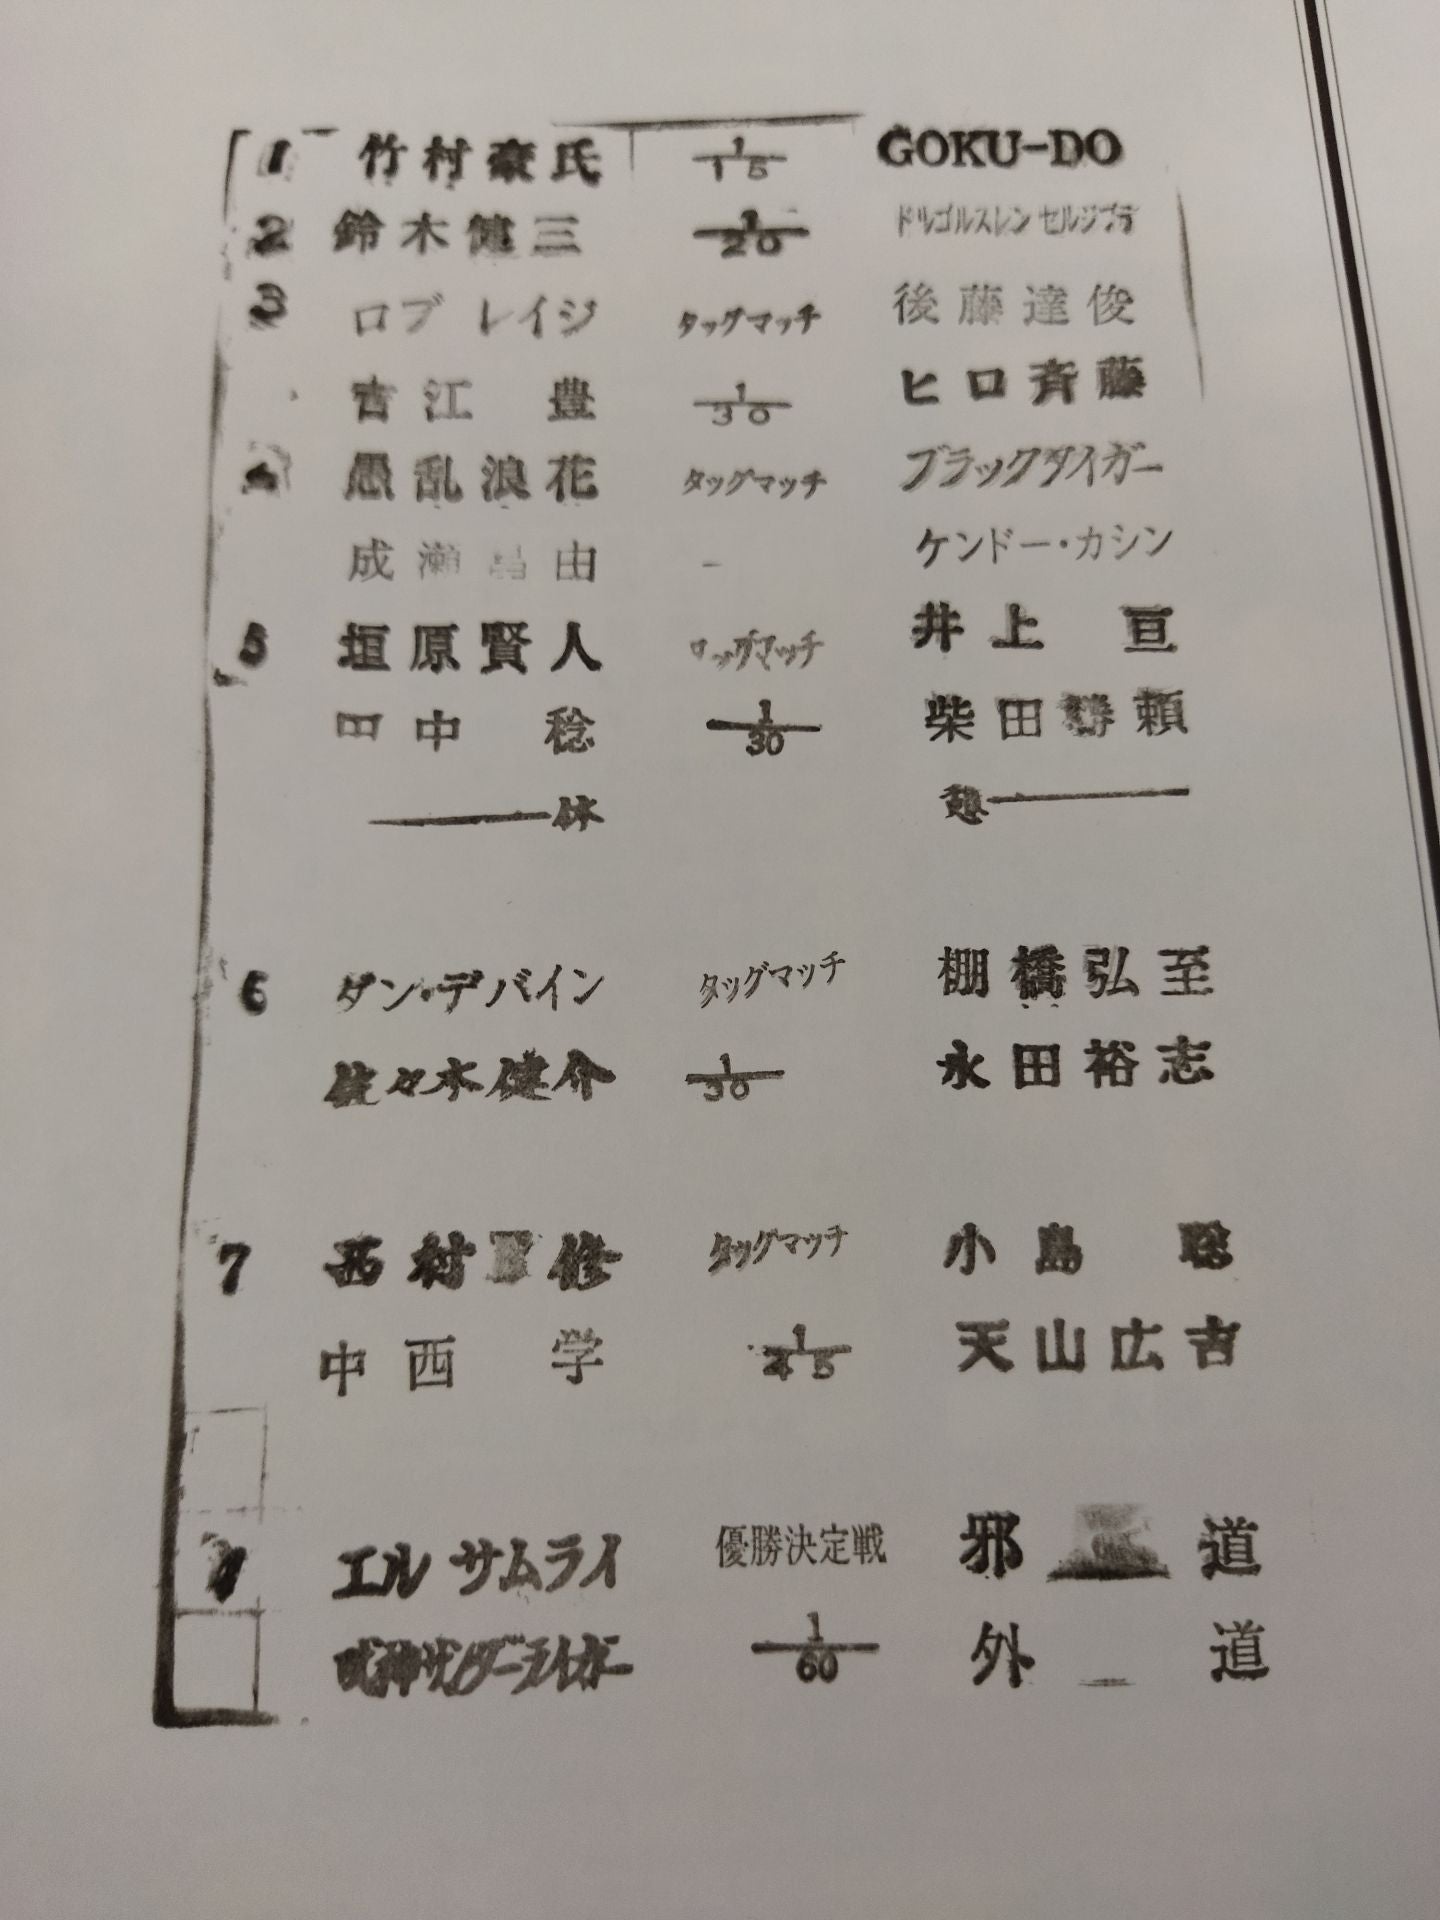 1 竹村豪氏 1/15 GOKU-DO
2 鈴木健三 1/20 ドルゴルスレン セルジブデ
3 ロブ レイジ タッグマッチ 後藤達俊
吉江 豊 1/30 ヒロ斉藤
4 愚乱浪花 タッグマッチ ブラックタイガー
成瀬昌由 ケンドー・カシン
5 垣原賢人 タッグマッチ 井上 亘
田中 稔 1/30 柴田勝頼
休 憩
6 ダン・デバイン タッグマッチ 棚橋弘至
佐々木健介 1/30 永田裕志
7 西村 修 タッグマッチ 小島 聡
中西 学 1/45 天山広吉
エル サムライ 優勝決定戦 邪道
獣神サンダーライガー 1/60 外道